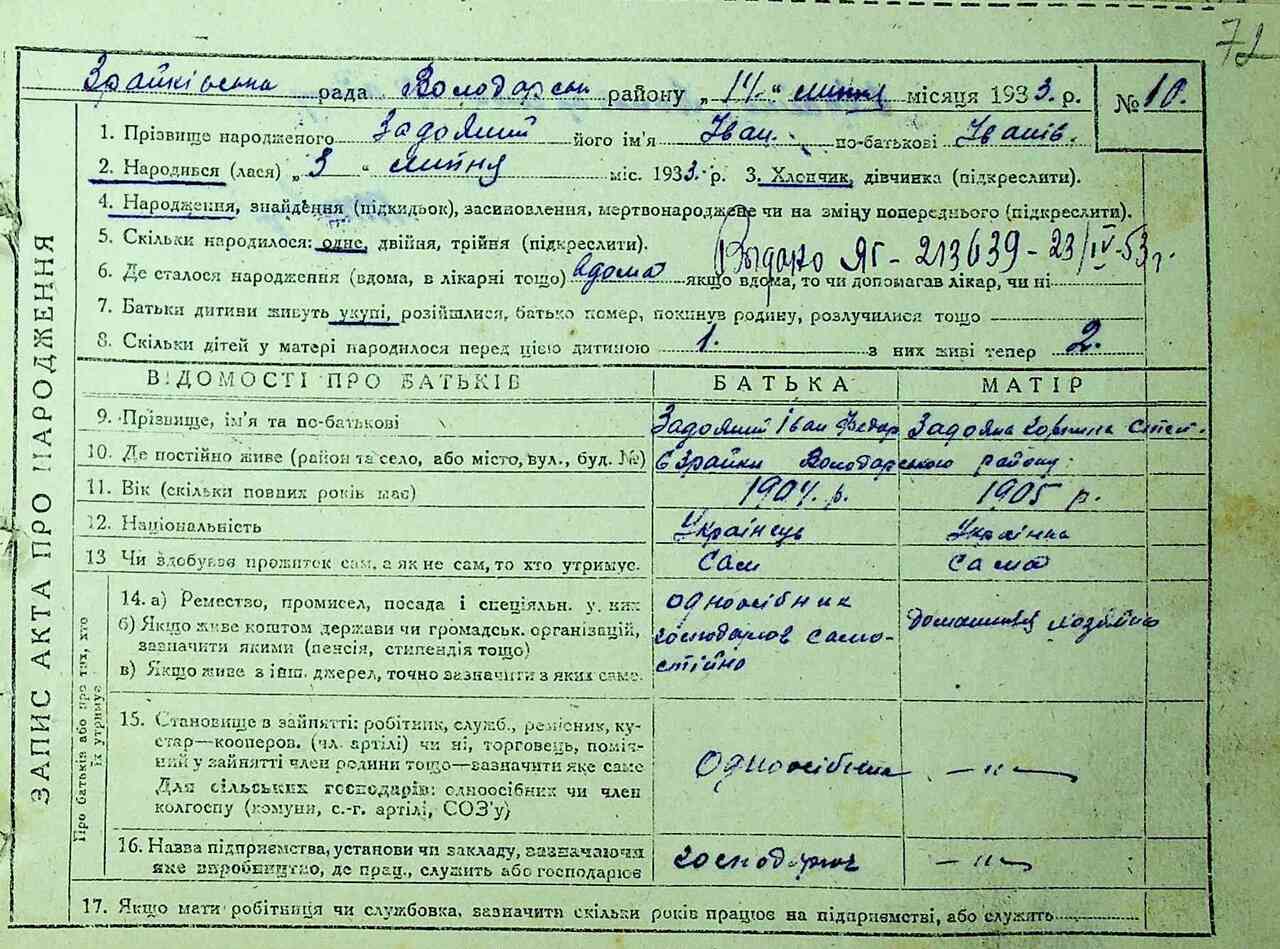 72
Зрайківська рада Володарськ району „14“ липня місяця 1933. р.
№ 10.
ЗАПИС АКТА ПРО НАРОДЖЕННЯ
1. Прізвище народженого Задояний його ім'я Іван. по-батькові Іванів.
2. Народився (лася) „3“ липня міс. 1933. р. 3. Хлопчик, дівчинка (підкреслити).
4. Народження, знайдення (підкидьок), засиновлення, мертвонароджене чи на зміну попереднього (підкреслити).
5. Скільки народилося: одне, двійня, трійня (підкреслити).
Выдано ЯГ - 213639 - 23/IV-53 г.
6. Де сталося народження (вдома, в лікарні тощо) вдома якщо вдома, то чи допомагав лікар, чи ні
7. Батьки дитини живуть укупі, розійшлися, батько помер, покинув родину, розлучилися тощо
8. Скільки дітей у матері народилося перед цією дитиною 1. з них живі тепер 2.
ВІДОМОСТІ ПРО БАТЬКІВ БАТЬКА МАТІР
9. Прізвище, ім'я та по-батькові Задояний Іван Федор Задояна Степ.
10. Де постійно живе (район та село, або місто, вул., буд. №) с Зрайки Володарського району.
11. Вік (скільки повних років має) 1904. р. 1905 р.
12. Національність Українець Українка
13 Чи здобуває прожиток сам, а як не сам, то хто утримує. Сам сама
Про батьків або про тих, хто їх утримує
14. а) Ремество, промисел, посада і спеціяльн. у них одноосібник
б) Якщо живе коштом держави чи громадськ. організацій, господарює само- домашня
зазначити якими (пенсія, стипендія тощо) стійно
в) Якщо живе з інш. джерел, точно зазначити з яких саме.
15. Становище в зайнятті: робітник, служб., ремісник, ку-
стар—кооперов. (чл. артілі) чи ні, торговець, поміч-
ний у зайнятті член родини тощо—зазначити яке саме Одноосібник — „ —
Для сільських господарів: одноосібник чи член
колгоспу (комуни, с.-г. артілі, СОЗ'у)
16. Назва підприємства, установи чи закладу, зазначаючи господарює — „ —
яке виробництво, де прац., служить або господарює
17. Якщо мати робітниця чи службовка, зазначити скільки років працює на підприємстві, або служить